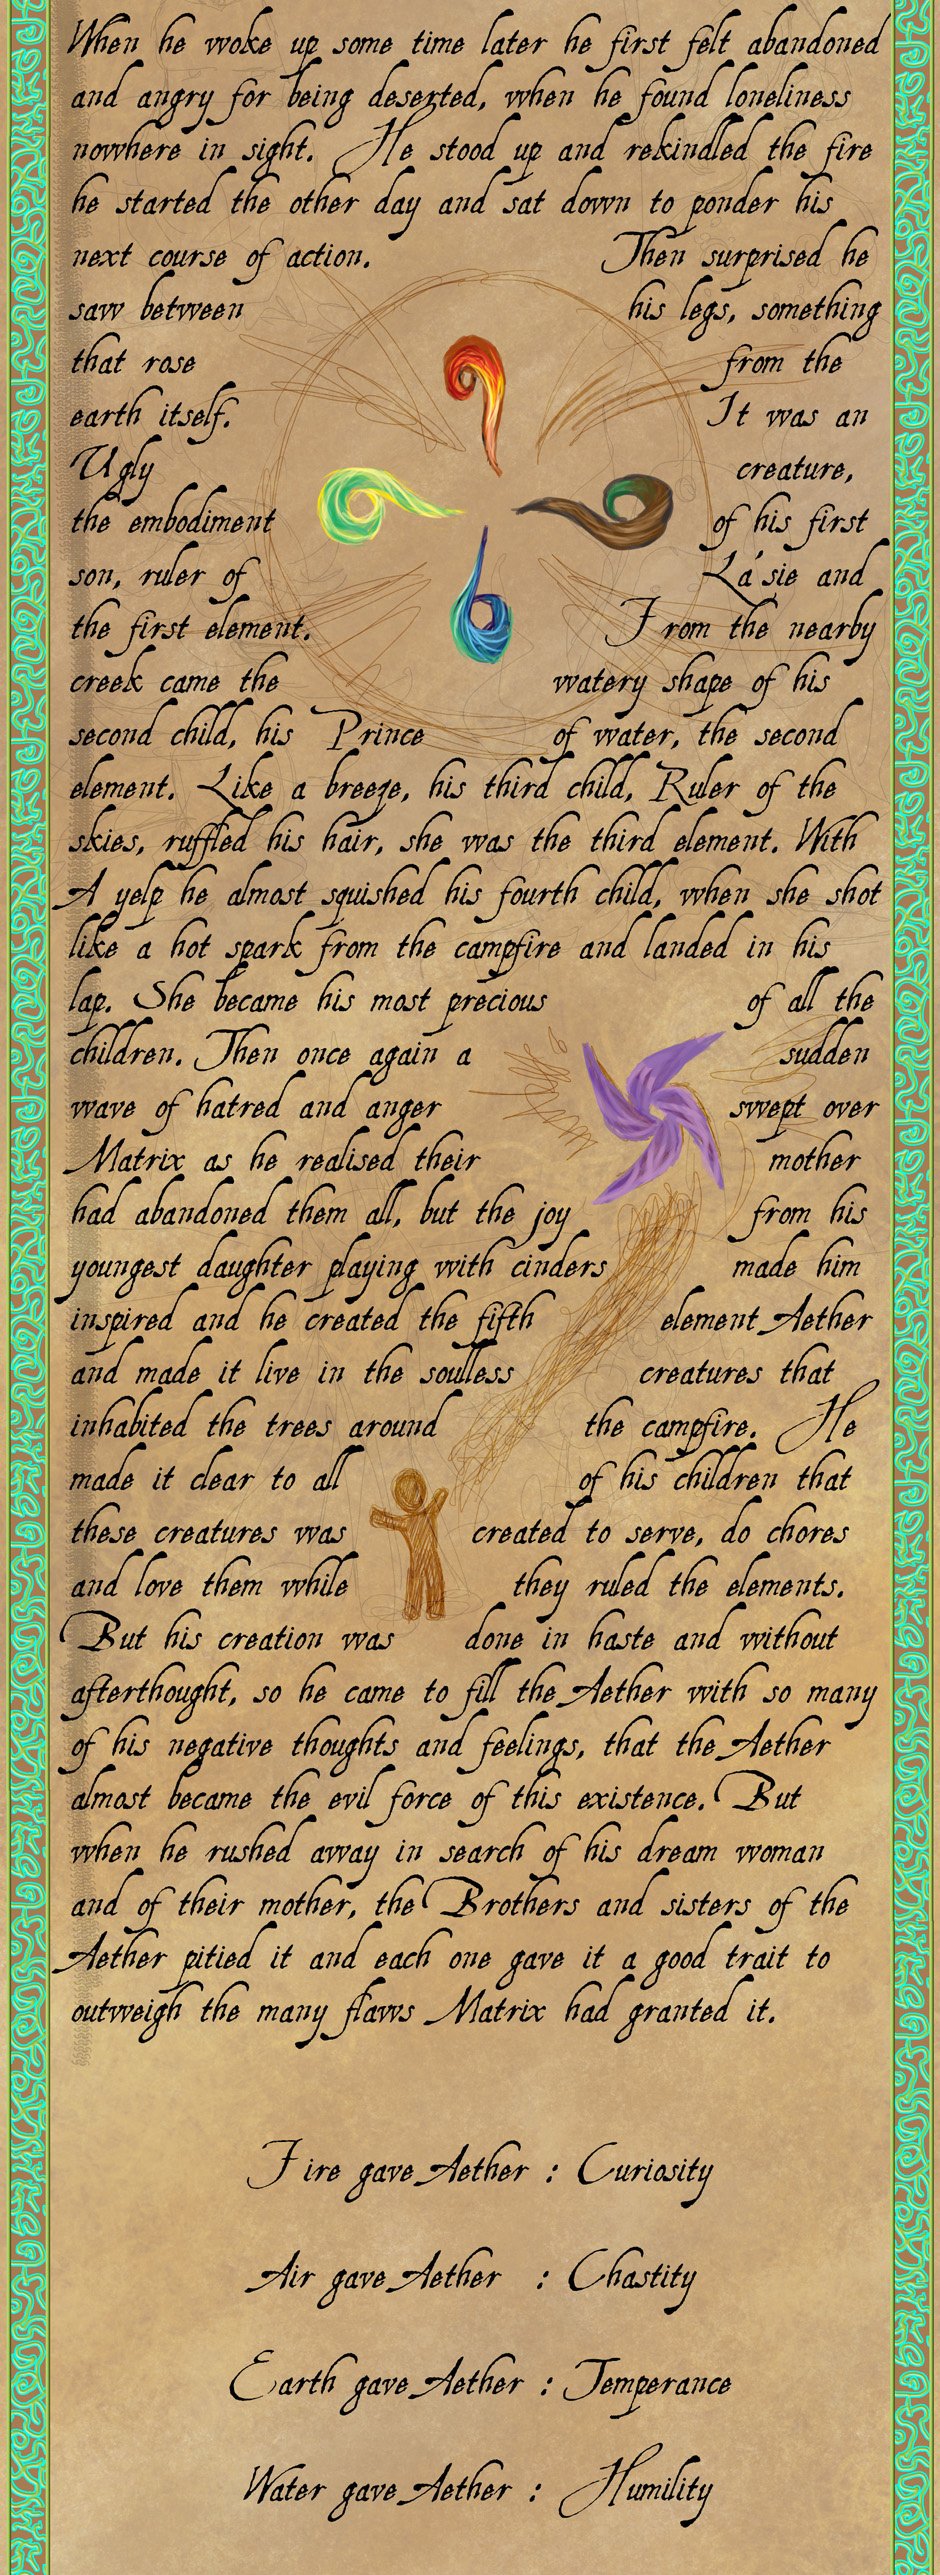 When he woke up some time later he first felt abandoned
and angry for being deserted, when he found loneliness
nowhere in sight. He stood up and rekindled the fire
he started the other day and sat down to ponder his
next course of action. Then surprised he
saw between his legs, something
that rose from the
earth itself. It was an
Ugly creature,
the embodiment of his first
son, ruler of La'sie and
the first element. From the nearby
creek came the watery shape of his
second child, his Prince of water, the second
element. Like a breeze, his third child, Ruler of the
skies, ruffled his hair, she was the third element. With
A yelp he almost squished his fourth child, when she shot
like a hot spark from the campfire and landed in his
lap. She became his most precious of all the
children. Then once again a sudden
wave of hatred and anger swept over
Matrix as he realised their mother
had abandoned them all, but the joy from his
youngest daughter playing with cinders made him
inspired and he created the fifth element Aether
and made it live in the soulless creatures that
inhabited the trees around the campfire. He
made it clear to all of his children that
these creatures was created to serve, do chores
and love them while they ruled the elements.
But his creation was done in haste and without
afterthought, so he came to fill the Aether with so many
of his negative thoughts and feelings, that the Aether
almost became the evil force of this existence. But
when he rushed away in search of his dream woman
and of their mother, the Brothers and sisters of the
Aether pitied it and each one gave it a good trait to
outweigh the many flaws Matrix had granted it.
Fire gave Aether : Curiosity
Air gave Aether : Chastity
Earth gave Aether : Temperance
Water gave Aether : Humility